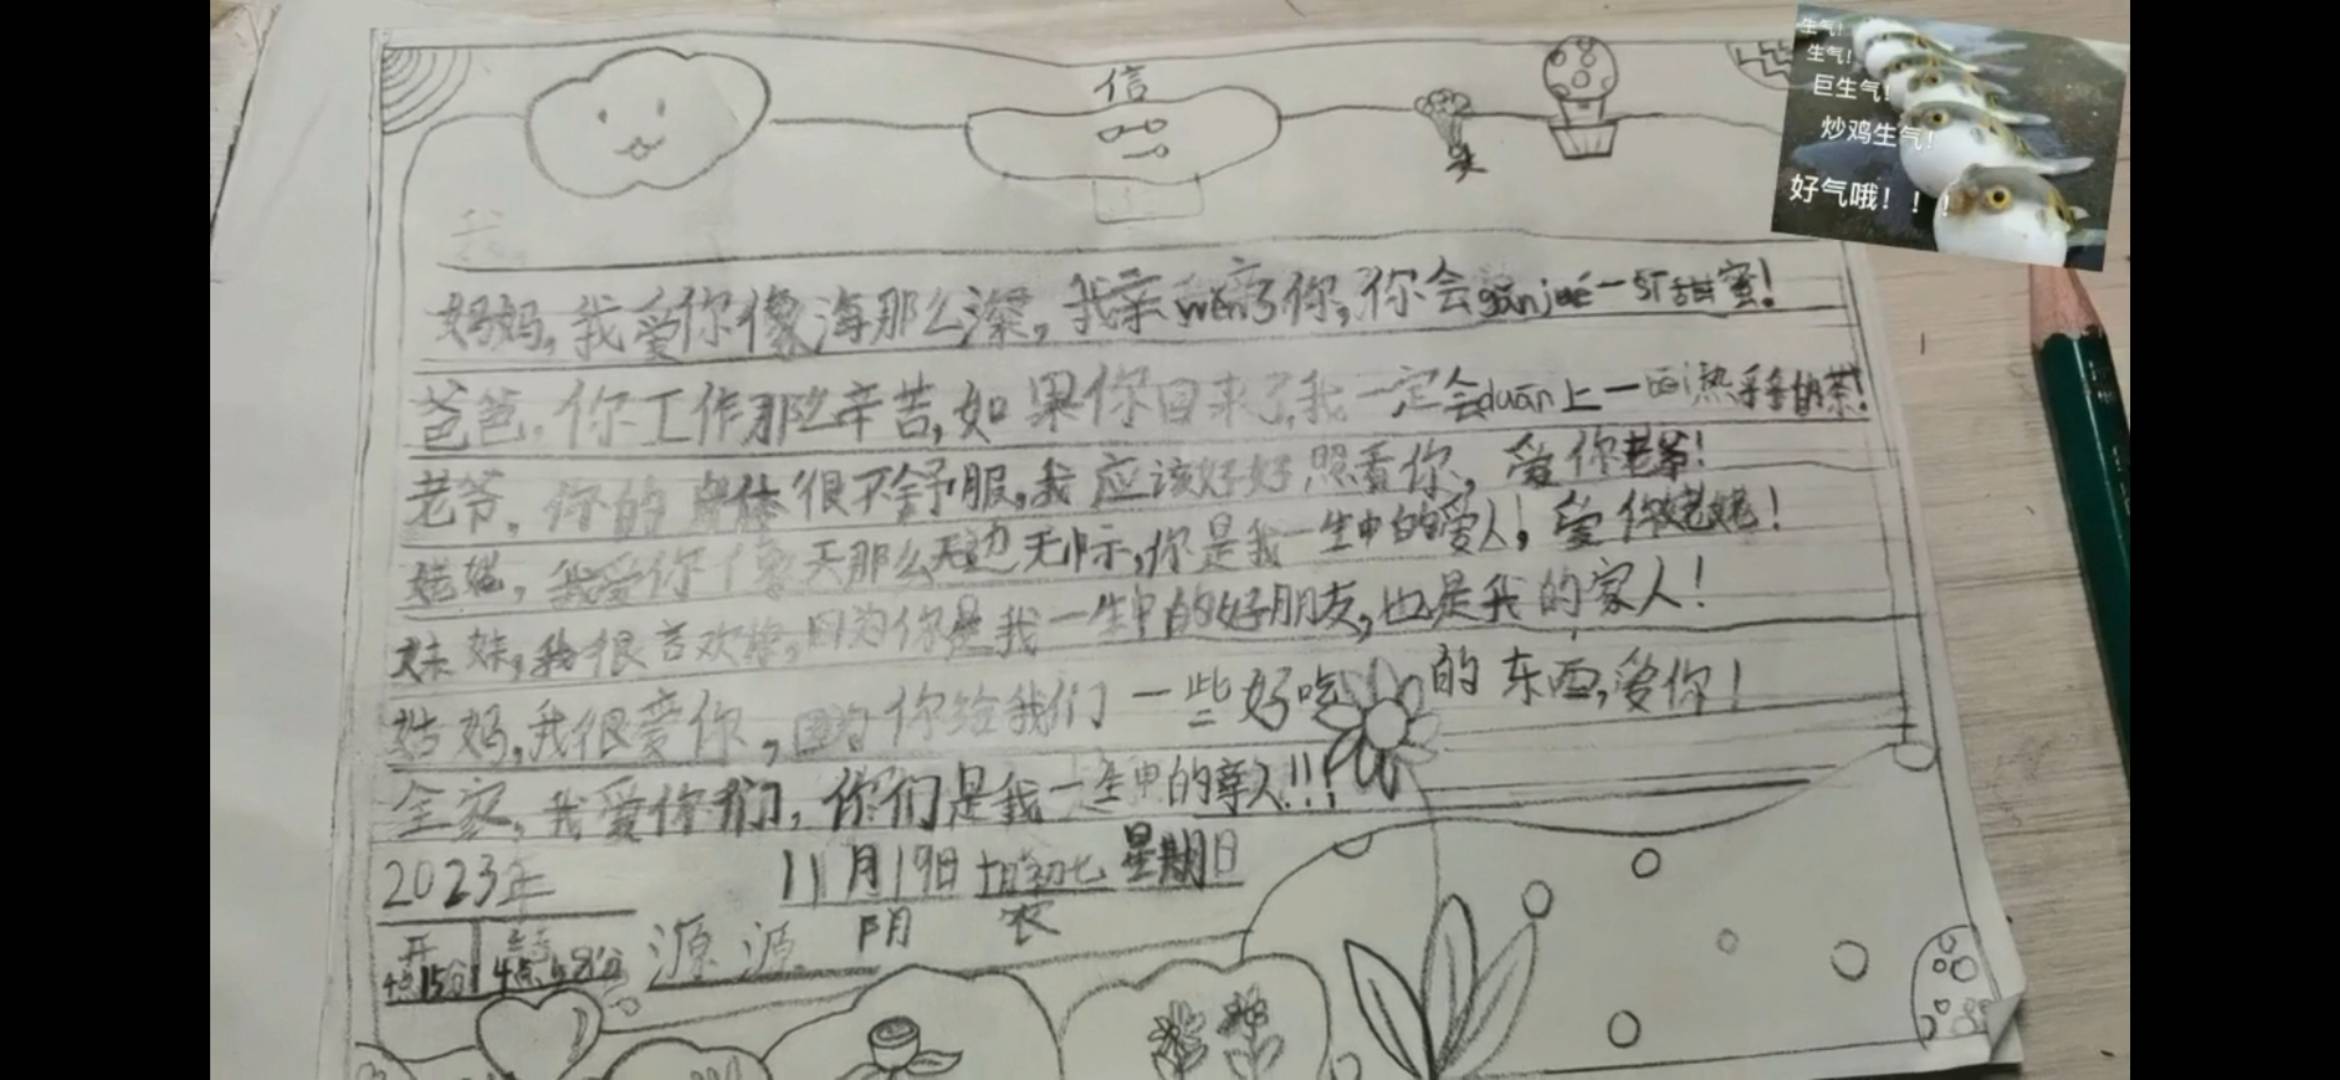 信
生气！
生气！
巨生气！
炒鸡生气！
好气哦！！！
我
妈妈，我爱你像海那么深，我亲wěn了你，你会gǎnjué一 甜蜜！
爸爸，你工作那么辛苦，如果你回来了，我一定会duān上一 热 奶茶！
老爷，你的身体很不舒服，我应该好好照看你，爱你老爷！
姥姥，我爱你像天那么无边无际，你是我一生中的爱人，爱你姥姥！
妹妹，我很喜欢 ，因为你是我一生中的好朋友，也是我的家人！
姑妈，我很爱你，因为你给我们一些好吃的东西，爱你！
全家，我爱你们，你们是我一生中的亲人!!!
2023年 11月19日 初七 星期日
阴 农
开
4点15分 4点 分
源源